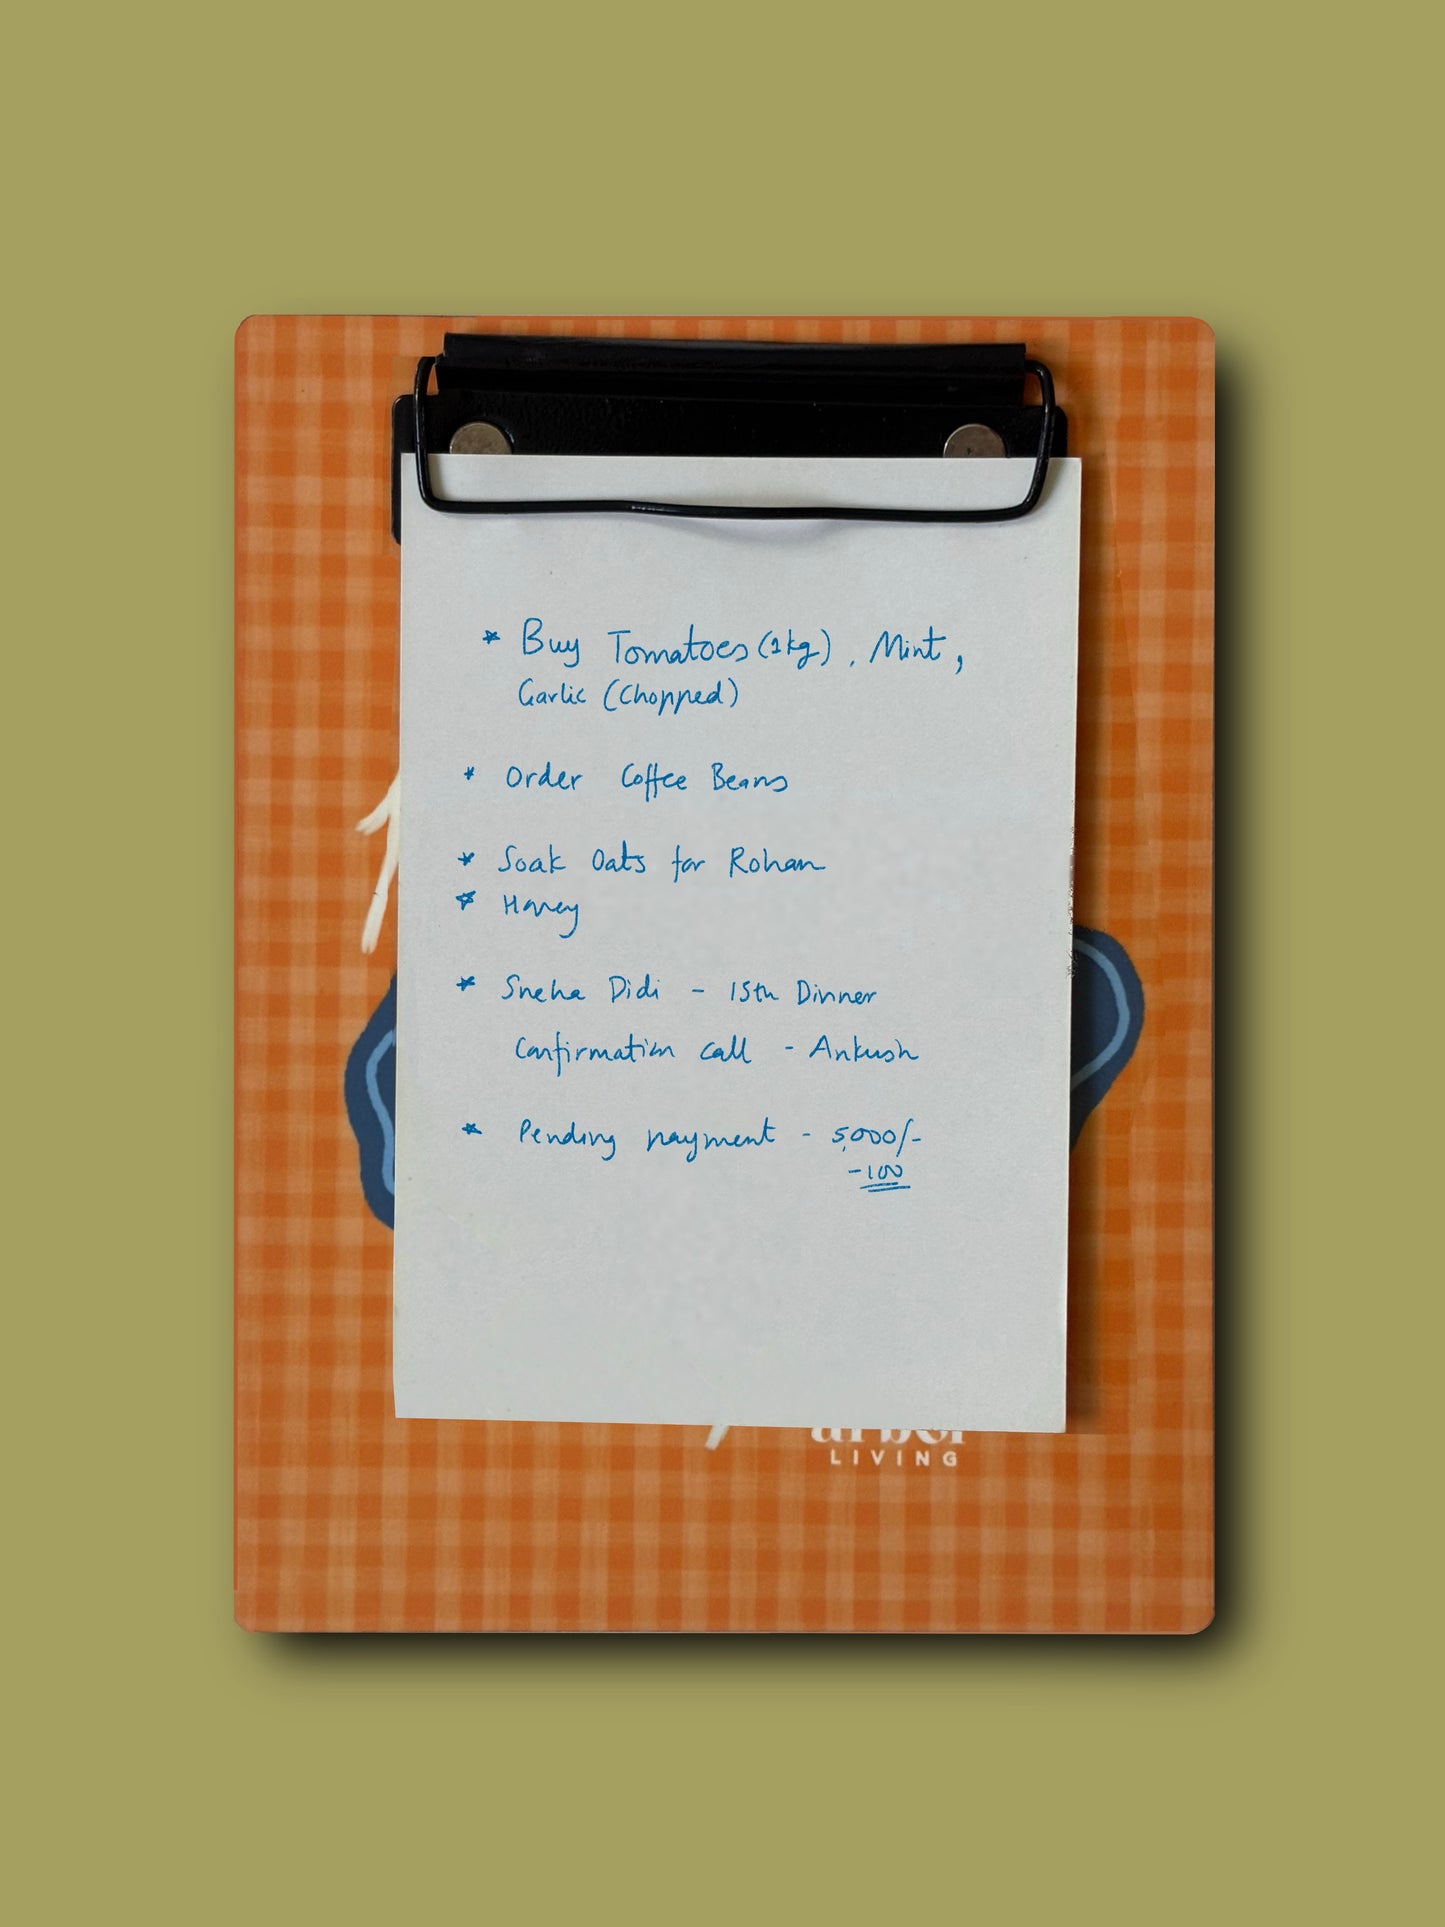 * Buy Tomatoes (1kg), Mint,
Garlic (Chopped)
* Order Coffee Beans
* Soak Oats for Rohan
* Honey
* Sneha Didi - 15th Dinner
Confirmation call - Ankush
* Pending payment - 5,000/-
-100
LIVING